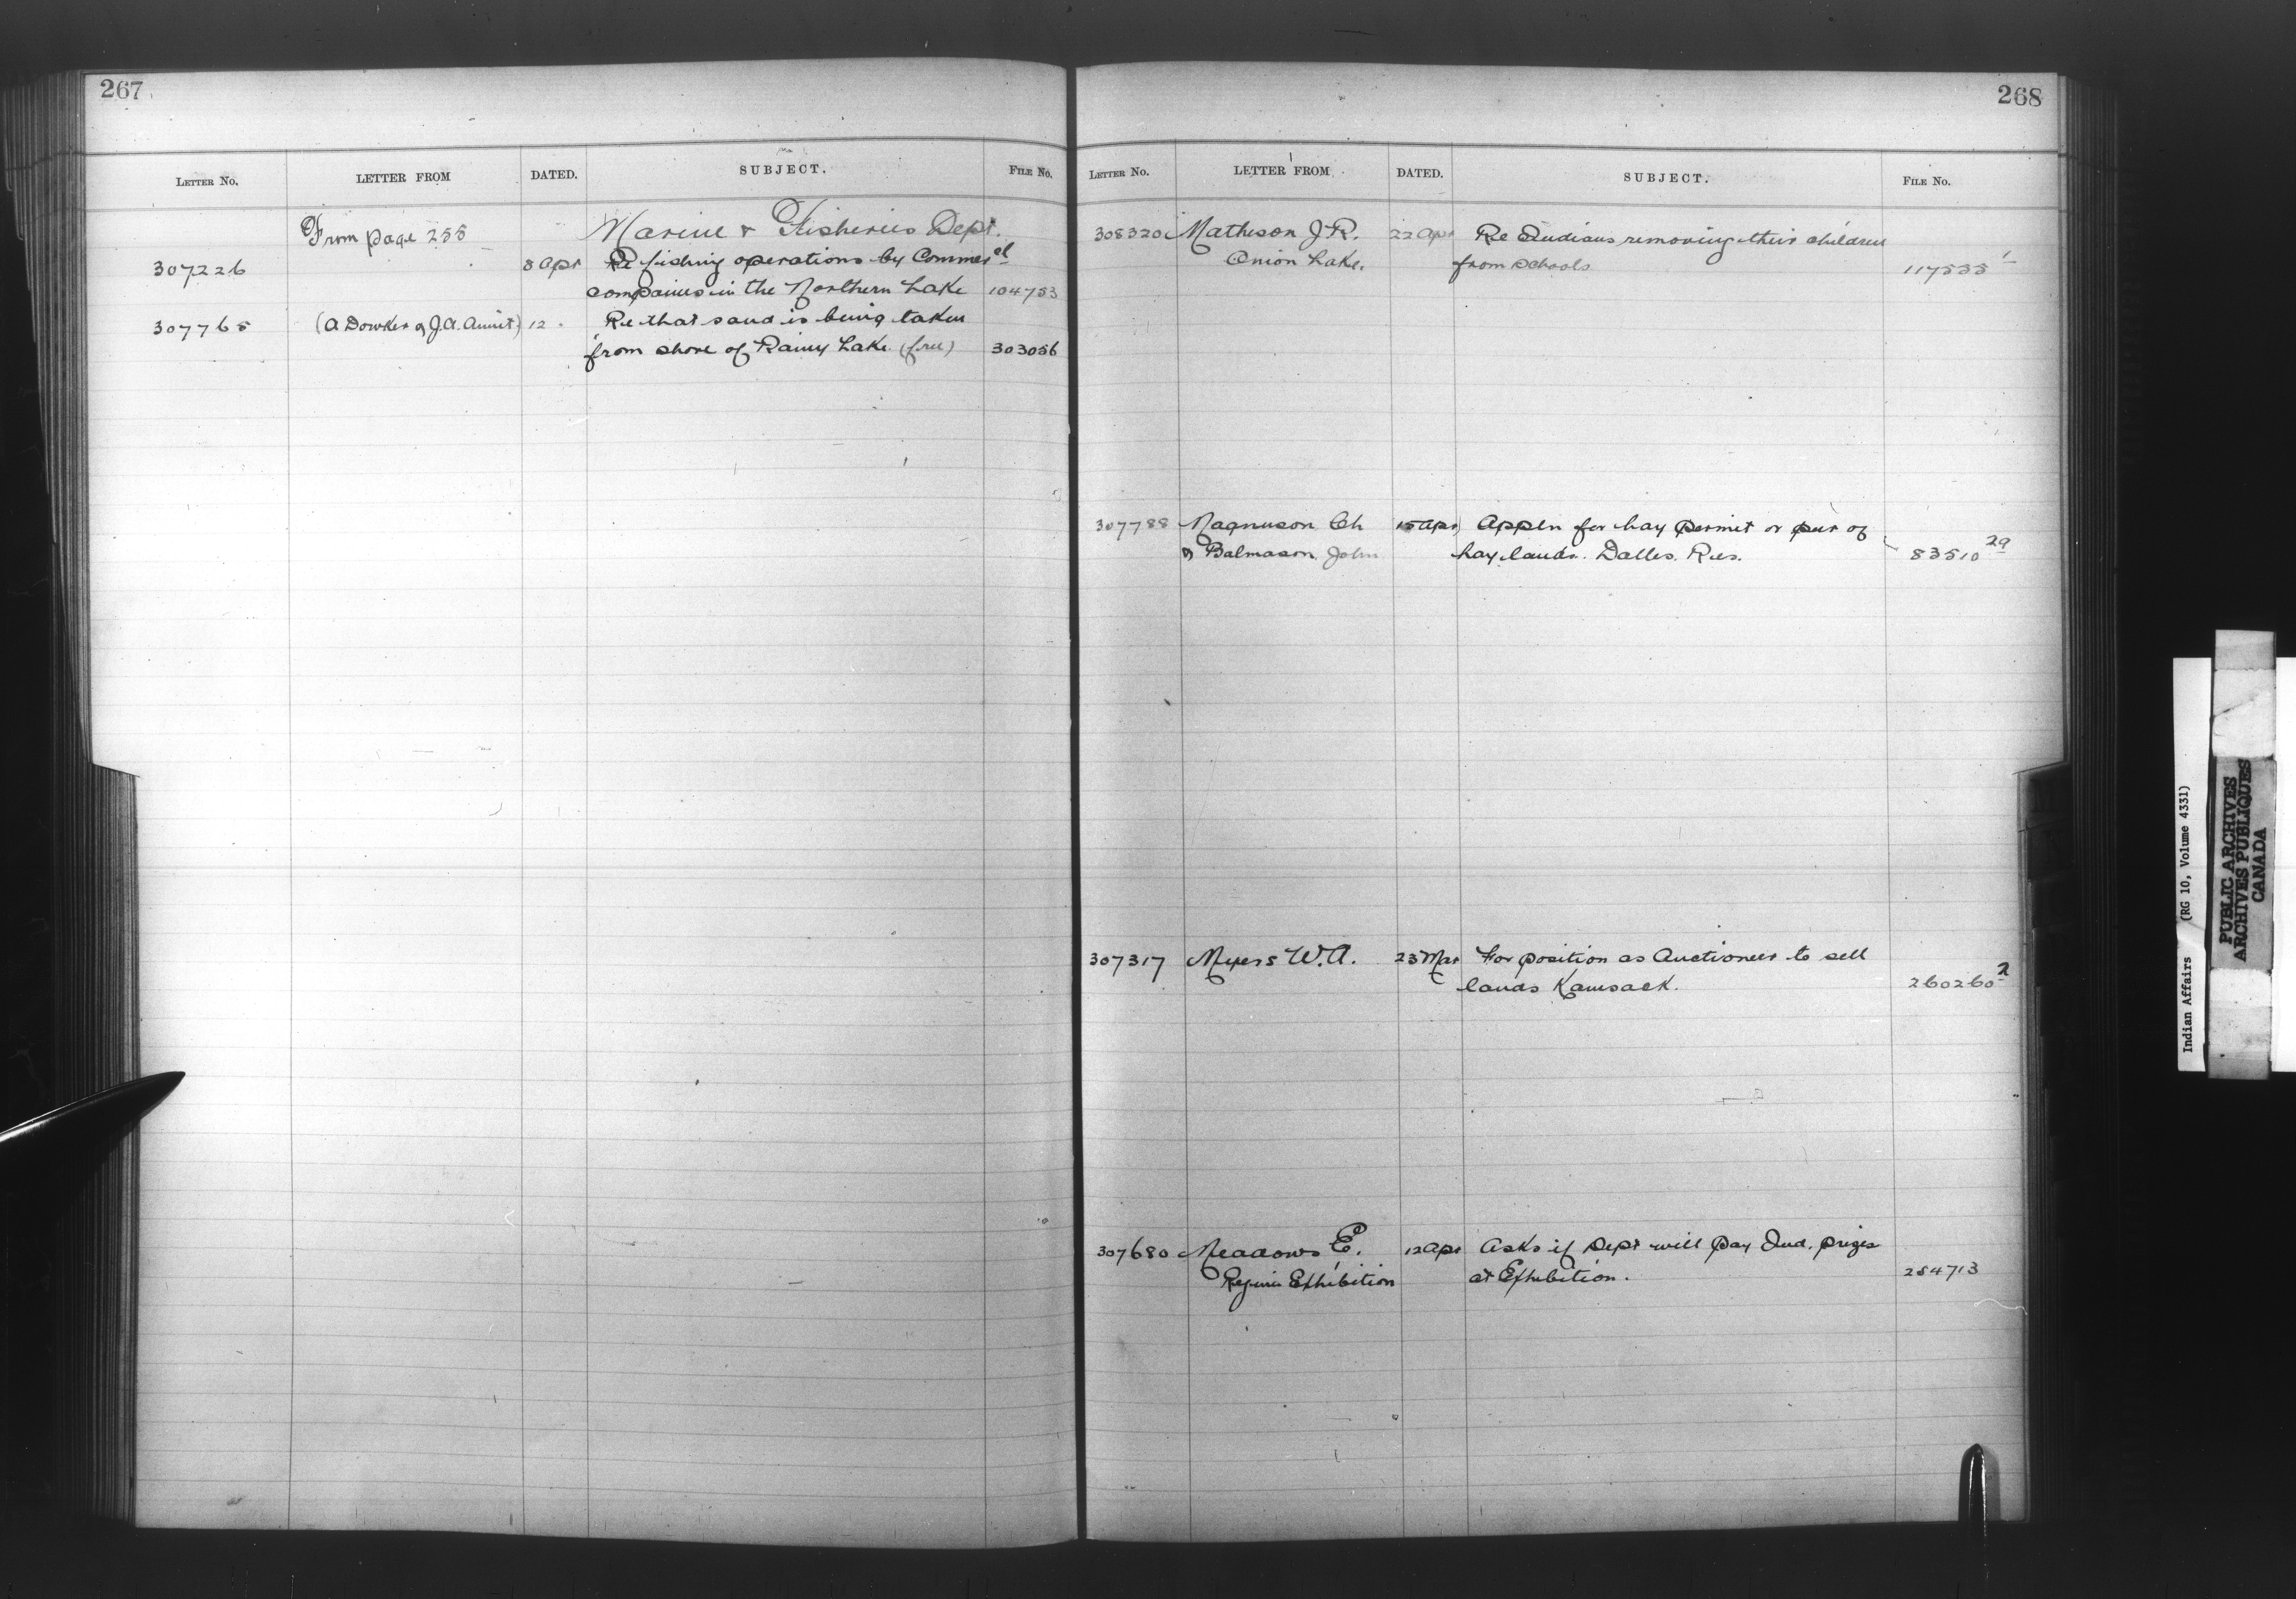 267
LETTER No. LETTER FROM DATED. SUBJECT. FILE No.
From page 255 Marine & Fisheries Dept.
307226 8 Apr Re fishing operations by Commercl
companies in the Northern Lake 104753
307765 (A Dowker & J.A. ) 12 . Re that sand is being taken
from shore of Rainy Lake (free) 303056
268
LETTER No. LETTER FROM DATED. SUBJECT. FILE No.
308320 Matheson J R. 22 Apr Re Indians removing their children
Onion Lake. from schools 117535 1
307788 Magnuson Ch 15 Apr Appln for hay permit or pur of
& Balmason John hay lands. Dalles. Res. 83510 29
307317 Myers W. A. 23 Mar For position as Auctioneer to sell
lands Kamsack. 260260 2
307680 Meadows E. 12 Apr Asks if Dept will pay Ind. prizes
Regina Exhibition at Exhibition. 254713
Indian Affairs (RG 10, Volume 4331)
PUBLIC ARCHIVES
ARCHIVES PUBLIQUES
CANADA